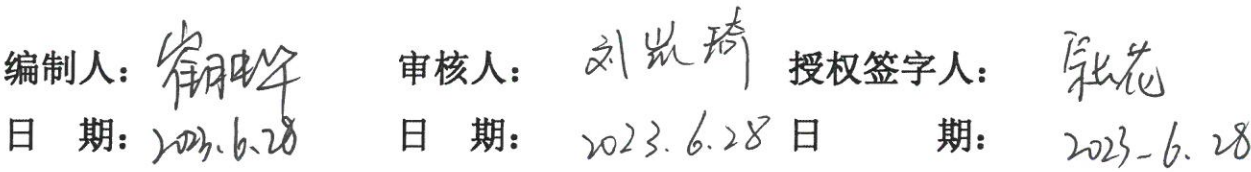 编制人： 审核人： 刘岚琦 授权签字人：
日 期：2023.6.28 日 期：2023.6.28 日 期：2023-6.28